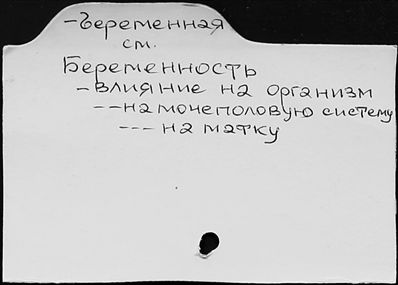 -Беременная
см.
Беременность
-влияние на организм
--на мочеполовую систему
--- на матку